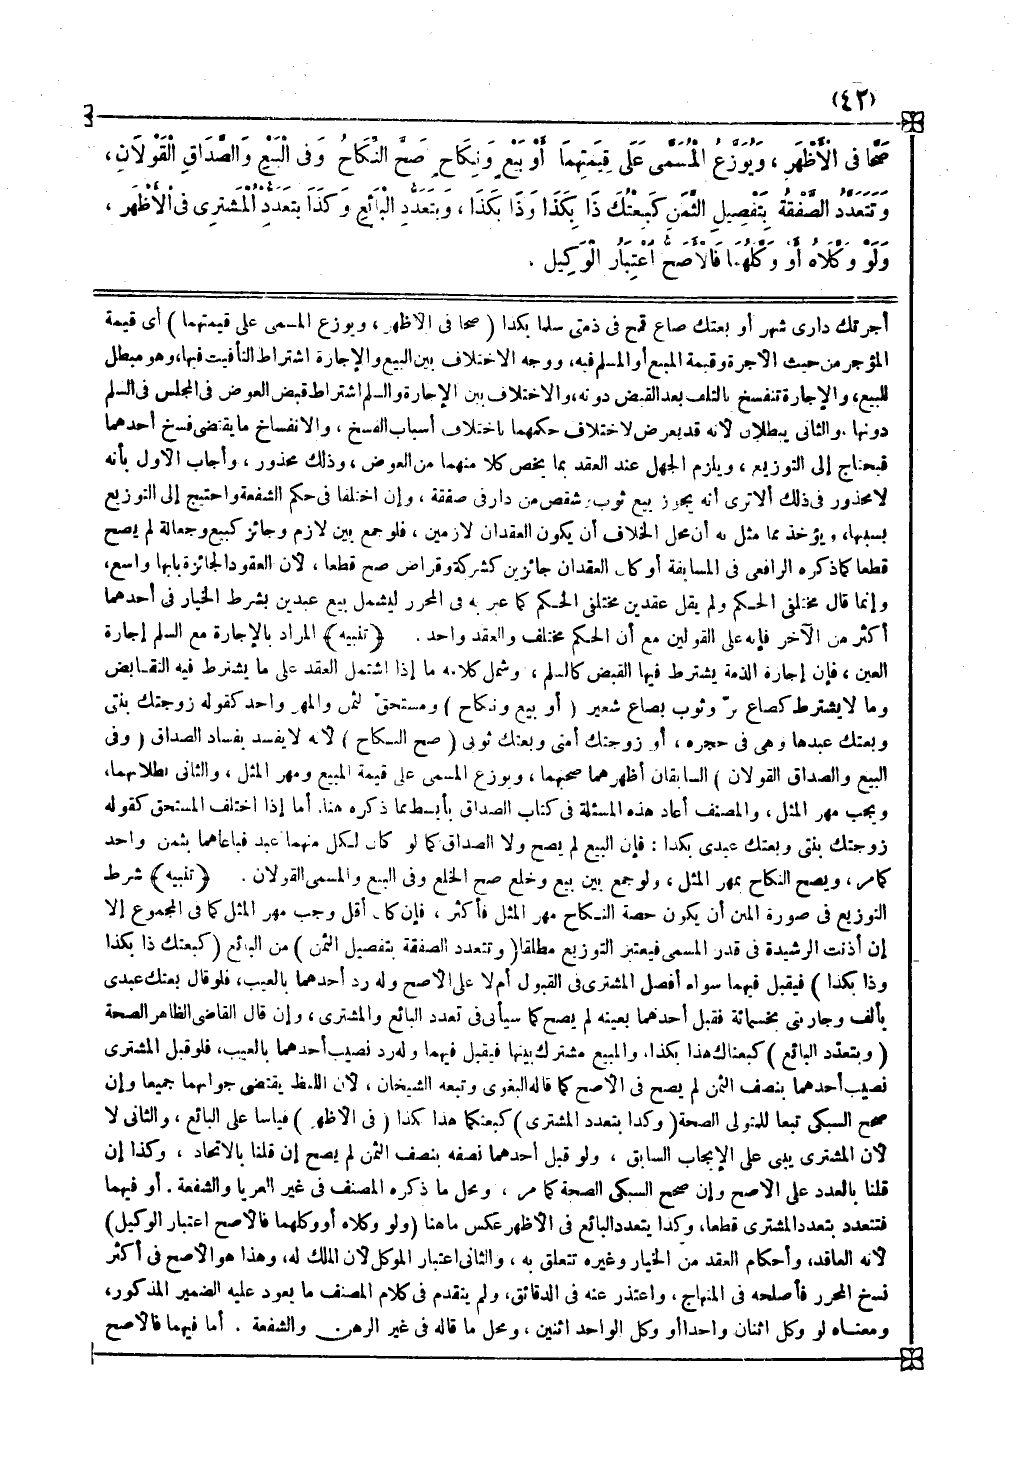 (٤٢)
صَحَّا فى الْأَظْهَرِ ، وَيُوَزَّعُ الْمُسَمَّى عَلَى قِيمَتِهِمَا أَوْ بَيْعٍ وَنِكَاحٍ صَحَّ النِّكَاحُ وَفى الْبَيْعِ وَالصَّدَاقِ الْقَوْلَانِ ،
وَتَتَعَدَّدُ الصَّفْقَةُ بِتَفْصِيلِ الثَّمَنِ كَبِعْتُكَ ذَا بِكَذَا وَذَا بِكَذَا ، وَبِتَعَدُّدِ الْبَائِعِ وَكَذَا بِتَعَدُّدِ الْمُشْتَرِى فى الْأَظْهَرِ ،
وَلَوْ وَكَّلَاهُ أَوْ وَكَّلَهُمَا فَالْأَصَحُّ اعْتِبَارُ الْوَكِيلِ .
أجرتك دارى شهر أو بعتك صاع قمح فى ذمتى سلما بكذا ( صحا فى الاظهر ، ويوزع المسمى على قيمتهما ) أى قيمة
المؤجر من حيث الاجرة وقيمة المبيع أو المسلم فيه، ووجه الاختلاف بين البيع والإجارة اشتراط التأقيت فيها، وهو مبطل
للبيع، والإجارة تنفسخ بالتلف بعد القبض دونه، والاختلاف بين الإجارة والسلم اشتراط قبض العوض فى المجلس فى السلم
دونها . والثانى يبطلان لأنه قد يعرض لاختلاف حكمهما باختلاف أسباب الفسخ ، والانفساخ ما يقتضى فسخ أحدهما
فيحتاج إلى التوزيع ، ويلزم الجهل عند العقد بما يخص كلا منهما من العوض ، وذلك محذور ، وأجاب الأول بأنه
لا محذور فى ذلك ألا ترى أنه يجوز بيع ثوب وشقص من دار فى صفقة ، وإن اختلفا فى حكم الشفعة واحتيج إلى التوزيع
بسببها، ويؤخذ مما مثل به أن محل الخلاف أن يكون العقدان لازمين ، فلو جمع بين لازم وجائز كبيع وجعالة لم يصح
قطعا كما ذكره الرافعى فى المسابقة أو كان العقدان جائزين كشركة وقراض صح قطعا ، لأن العقود الجائزة بابها واسع،
وإنما قال مختلفى الحكم ولم يقل عقدين مختلفى الحكم كما عبر به فى المحرر ليشمل بيع عبدين بشرط الخيار فى أحدهما
أكثر من الآخر فإنه على القولين مع أن الحكم مختلف والعقد واحد . ﴿تنبيه﴾ المراد بالإجارة مع السلم إجارة
العين ، فإن إجارة الذمة يشترط فيها القبض كالسلم ، وشمل كلامه ما إذا اشتمل العقد على ما يشترط فيه التقابض
وما لا يشترط كصاع برّ وثوب بصاع شعير ( أو بيع ونكاح ) ومستحق الثمن والمهر واحد كقوله زوجتك بنتى
وبعتك عبدها وهى فى حجره ، أو زوجتك أمتى وبعتك ثوبى ( صح النكاح ) لأنه لا يفسد بفساد الصداق ( وفى
البيع والصداق القولان ) السابقان أظهرهما صحتهما ، ويوزع المسمى على قيمة المبيع ومهر المثل ، والثانى بطلانهما،
ويجب مهر المثل ، والمصنف أعاد هذه المسئلة فى كتاب الصداق بأبسط مما ذكره هنا. أما إذا اختلف المستحق كقوله
زوجتك بنتى وبعتك عبدى بكذا : فإن البيع لم يصح ولا الصداق كما لو كان لكل منهما عبد فباعاهما بثمن واحد
كما مر ، ويصح النكاح بمهر المثل ، ولو جمع بين بيع وخلع صح الخلع وفى البيع والمسمى القولان . ﴿تنبيه﴾ شرط
التوزيع فى صورة المتن أن يكون حصة النكاح مهر المثل فأكثر ، فإن كان أقل وجب مهر المثل كما فى المجموع إلا
إن أذنت الرشيدة فى قدر المسمى فيعتبر التوزيع مطلقا ( وتتعدد الصفقة بتفصيل الثمن ) من البائع ( كبعتك ذا بكذا
وذا بكذا ) فيقبل فيهما سواء أفصل المشترى فى القبول أم لا على الأصح وله رد أحدهما بالعيب، فلو قال بعتك عبدى
بألف وجاريتى بخمسمائة فقبل أحدهما بعينه لم يصح كما سيأتى فى تعدد البائع والمشترى ، وإن قال القاضى الظاهر الصحة
( وبتعدّد البائع ) كبعناك هذا بكذا. والمبيع مشترك بينهما فيقبل فيهما وله رد نصيب أحدهما بالعيب، فلو قبل المشترى
نصيب أحدهما بنصف الثمن لم يصح فى الأصح كما قاله البغوى وتبعه الشيخان ، لأن اللفظ يقتضى جوابهما جميعا وإن
صحح السبكى تبعا للمتولى الصحة ( وكذا بتعدد المشترى ) كبعتكما هذا بكذا ( فى الأظهر ) قياسا على البائع ، والثانى لا
لأن المشترى يبنى على الإيجاب السابق ، ولو قبل أحدهما نصفه بنصف الثمن لم يصح إن قلنا بالاتحاد ، وكذا إن
قلنا بالتعدد على الأصح وإن صحح السبكى الصحة كما مر ، ومحل ما ذكره المصنف فى غير العرايا والشفعة . أو فيهما
فتتعدد بتعدد المشترى قطعا، وكذا يتعدد البائع فى الأظهر عكس ما هنا (ولو وكلاه أو وكلهما فالأصح اعتبار الوكيل)
لأنه العاقد، وأحكام العقد من الخيار وغيره تتعلق به ، والثانى اعتبار الموكل لأن الملك له، وهذا هو الأصح فى أكثر
نسخ المحرر فأصلحه فى المنهاج ، واعتذر عنه فى الدقائق، ولم يتقدم فى كلام المصنف ما يعود عليه الضمير المذكور،
ومعناه لو وكل اثنان واحدا أو وكل الواحد اثنين ، ومحل ما قاله فى غير الرهن والشفعة . أما فيهما فالأصح